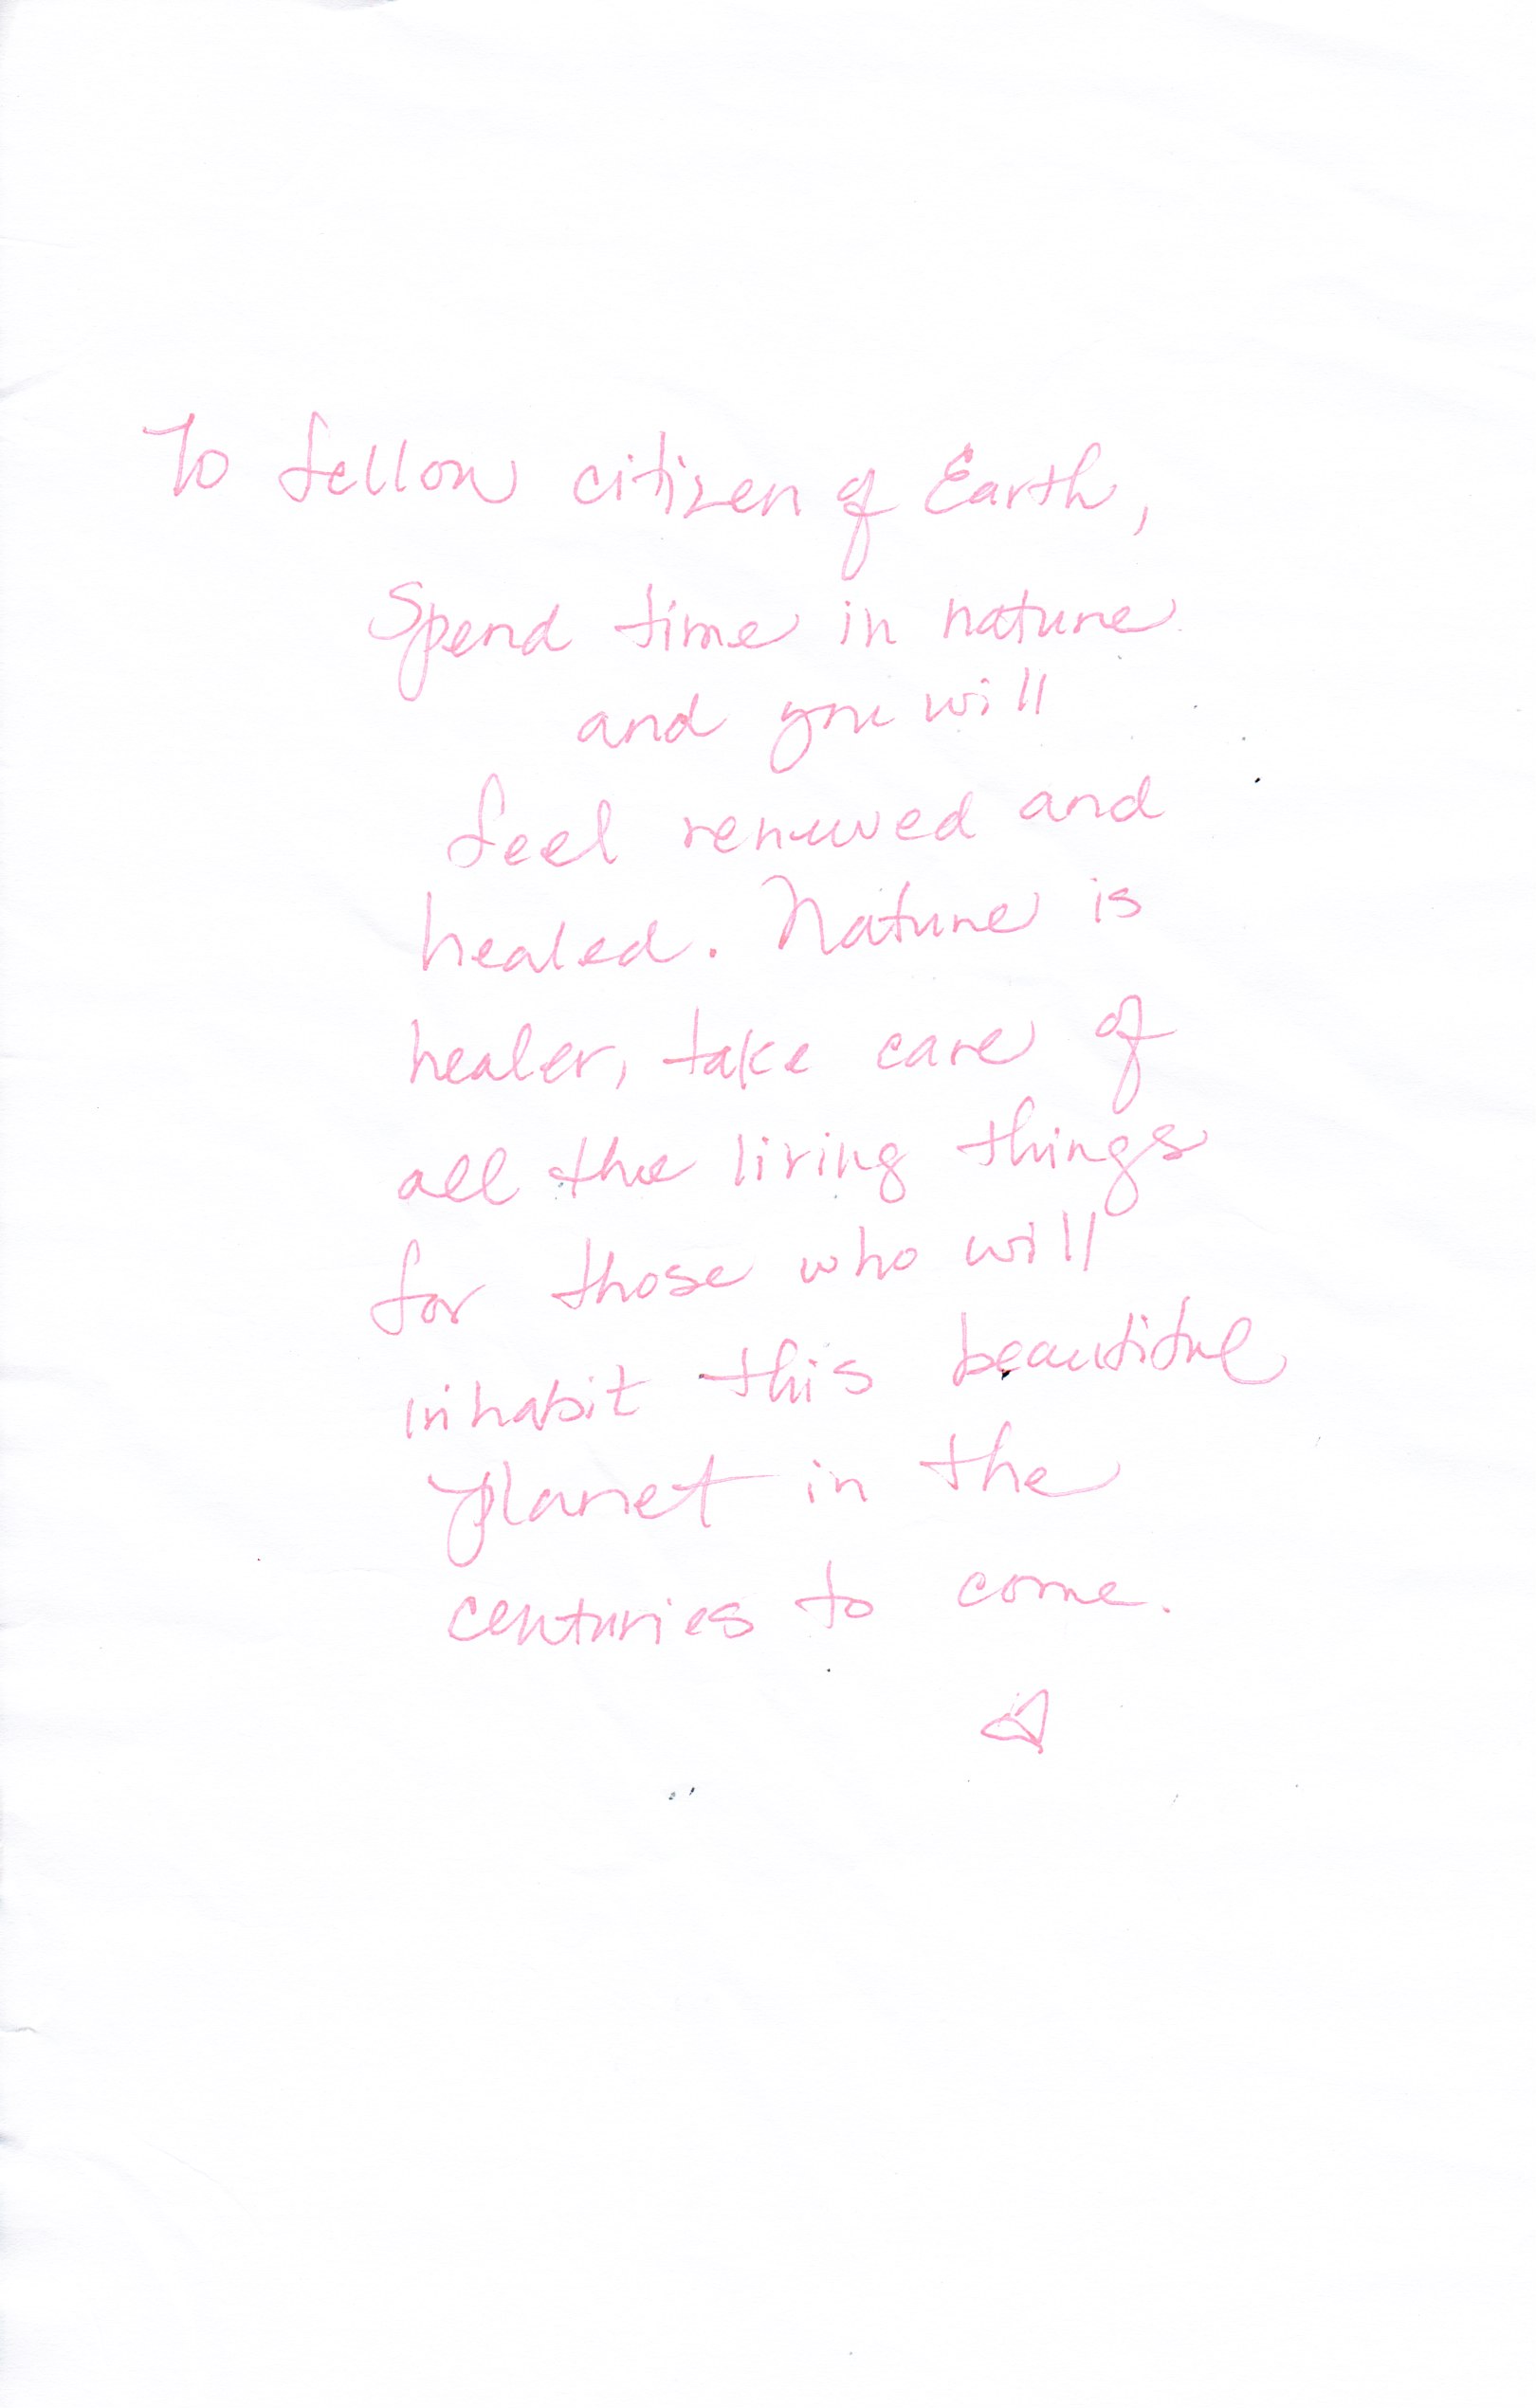 To fellow citizen of Earth,
Spend time in nature
and you will
feel renewed and
healed. Nature is
healer, take care of
all the living things
for those who will
inhabit this beautiful
planet in the
centuries to come.